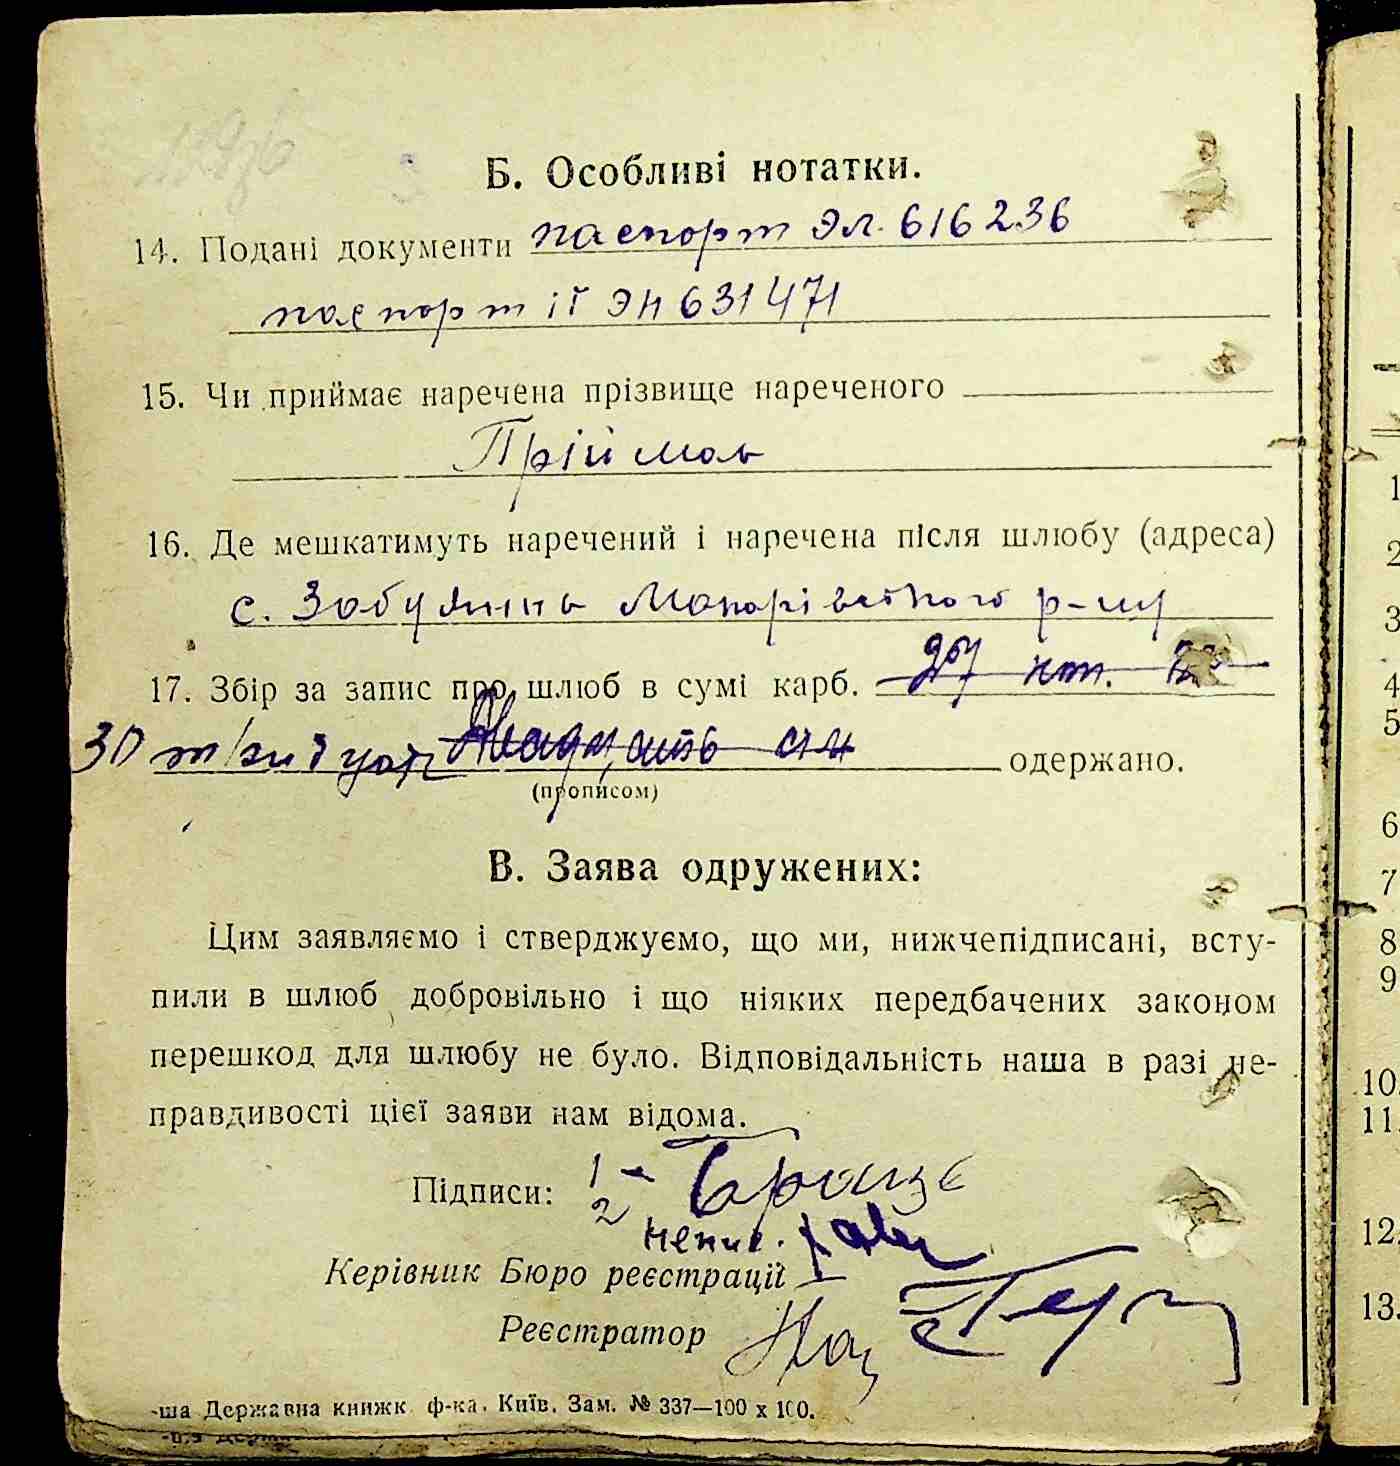 Б. Особливі нотатки.
14. Подані документи паспорт ЭЛ. 616236
паспорт її ЭН 631471
15. Чи приймає наречена прізвище нареченого
Пріймаь
16. Де мешкатимуть наречений і наречена після шлюбу (адреса)
с. Забуяння Макарівського р-ну
17. Збір за запис про шлюб в сумі карб.
30 одержано.
(прописом)
В. Заява одружених:
Цим заявляємо і стверджуємо, що ми, нижчепідписані, всту-
пили в шлюб добровільно і що ніяких передбачених законом
перешкод для шлюбу не було. Відповідальність наша в разі не-
правдивості цієї заяви нам відома.
Підписи: 1-
2
Керівник Бюро реєстрації
Реєстратор
-ша Державна книжк. ф-ка. Київ. Зам. № 337—100 х 100.
1
2
3
4
5
6
7
8
9
10.
11.
12.
13.